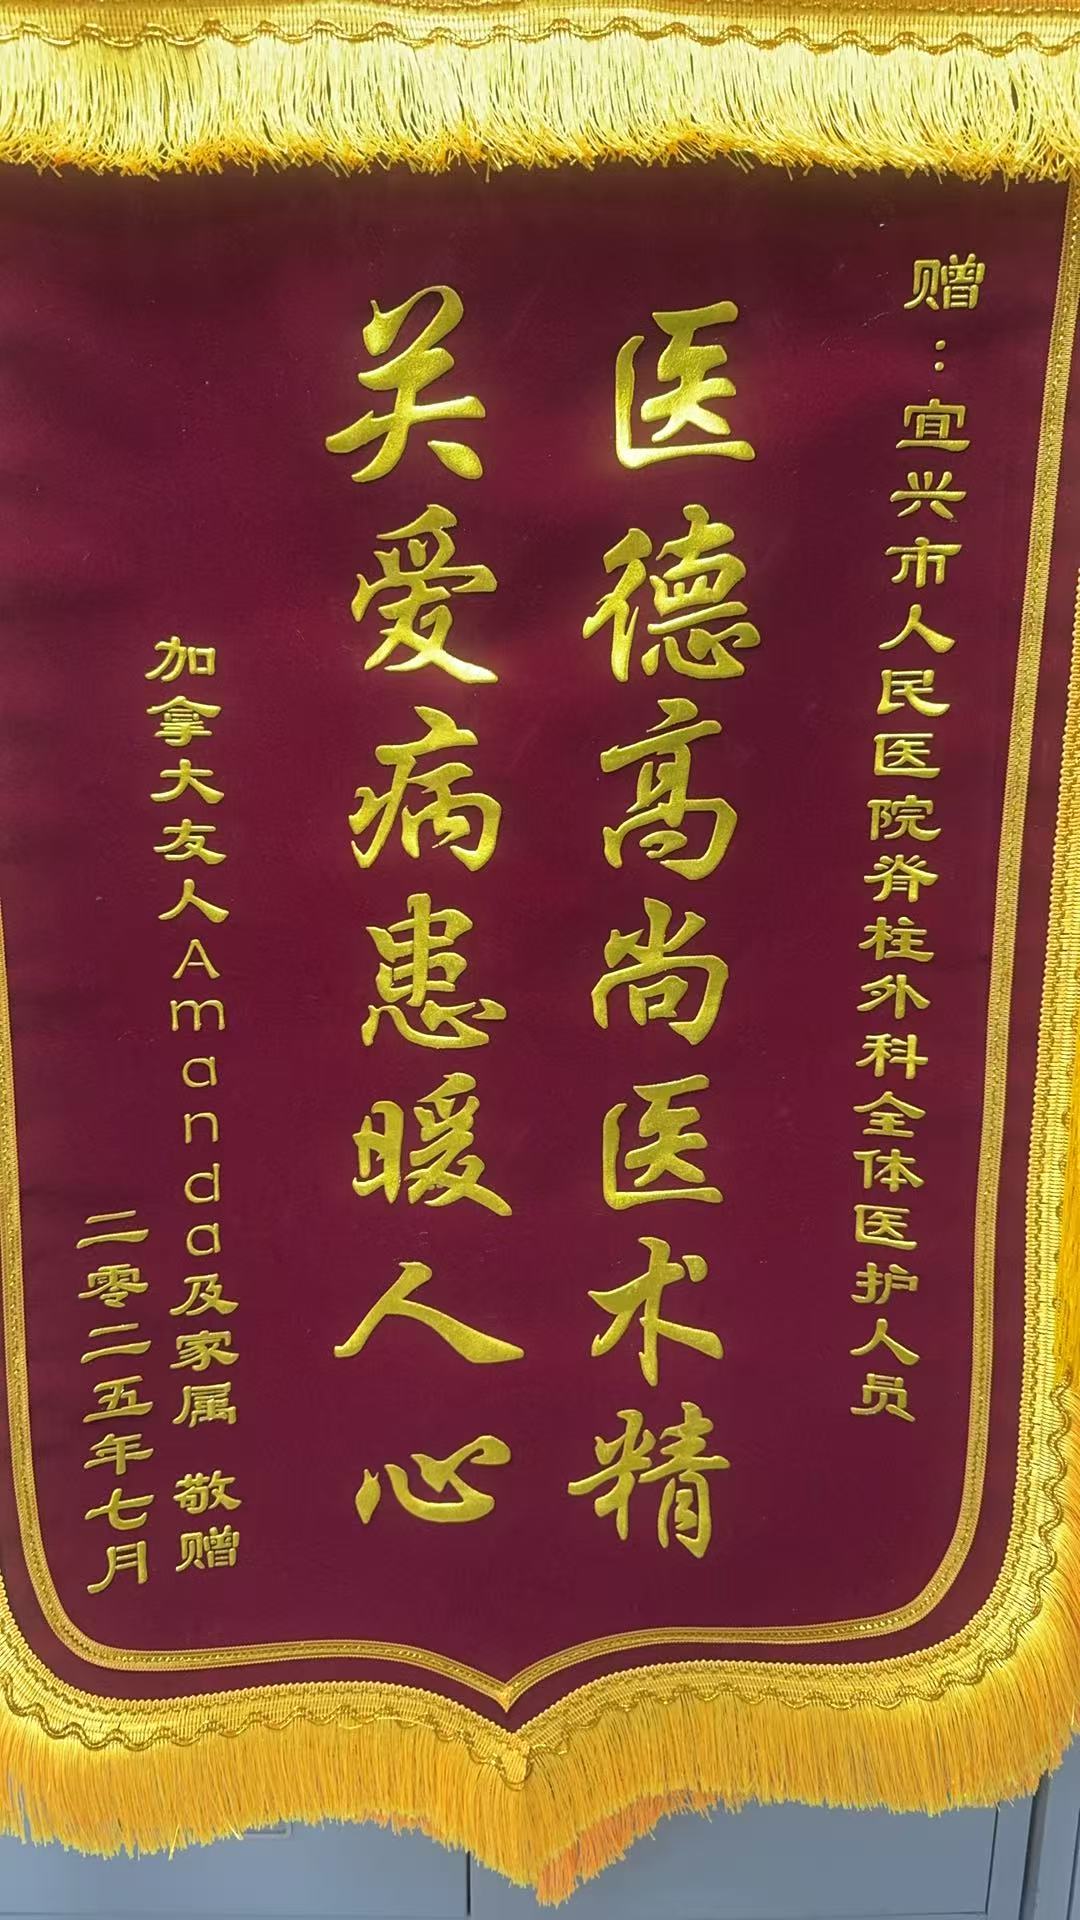 赠：宜兴市人民医院脊柱外科全体医护人员
医德高尚医术精
关爱病患暖人心
加拿大友人Amanda及家属 敬赠
二零二五年七月